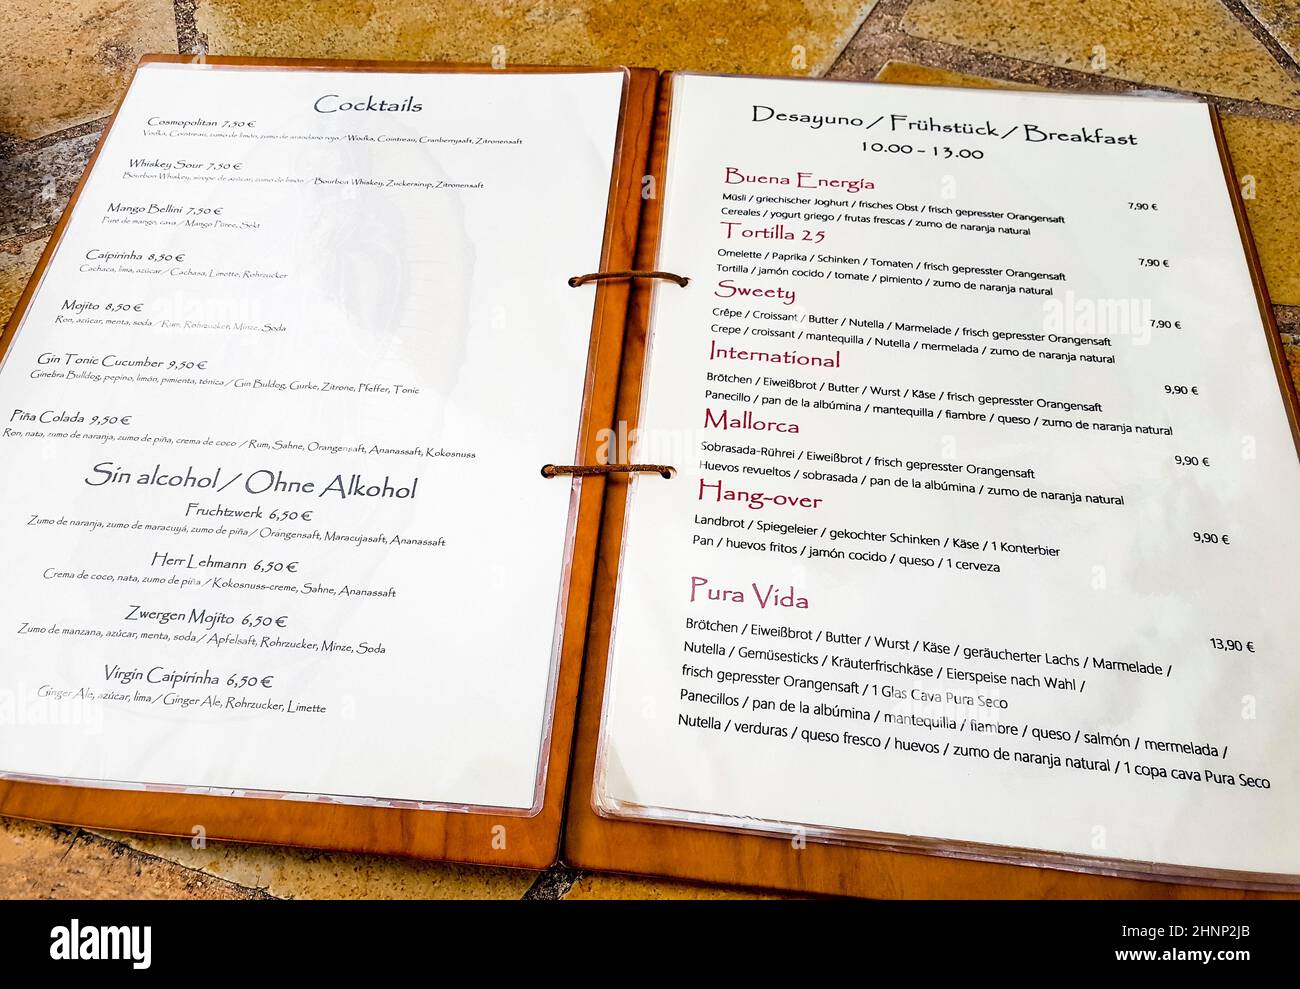 Cocktails
Cosmopolitan 7,50 €
Vodka, Cointreau, zumo de limón, zumo de arandano rojo / Wodka, Cointreau, Cranberrysaft, Zitronensaft
Whiskey Sour 7,50 €
Bourbon Whiskey, sirope de azúcar, zumo de limón / Bourbon Whiskey, Zuckersirup, Zitronensaft
Mango Bellini 7,50 €
Puré de mango, cava / Mango Püree, Sekt
Caipirinha 8,50 €
Cachaca, lima, azúcar / Cachasa, Limette, Rohrzucker
Mojito 8,50 €
Ron, azúcar, menta, soda / Rum, Rohrzucker, Minze, Soda
Gin Tonic Cucumber 9,50 €
Ginebra Bulldog, pepino, limón, pimienta, tónica / Gin Buldog, Gurke, Zitrone, Pfeffer, Tonic
Piña Colada 9,50 €
Ron, nata, zumo de naranja, zumo de piña, crema de coco / Rum, Sahne, Orangensaft, Ananassaft, Kokosnuss
Sin alcohol / Ohne Alkohol
Fruchtzwerk 6,50 €
Zumo de naranja, zumo de maracuyá, zumo de piña / Orangensaft, Maracujasaft, Ananassaft
Herr Lehmann 6,50 €
Crema de coco, nata, zumo de piña / Kokosnuss-creme, Sahne, Ananassaft
Zwergen Mojito 6,50 €
Zumo de manzana, azúcar, menta, soda / Apfelsaft, Rohrzucker, Minze, Soda
Virgin Caipirinha 6,50 €
Ginger Ale, azúcar, lima / Ginger Ale, Rohrzucker, Limette
Desayuno / Frühstück / Breakfast
10.00 – 13.00
Buena Energía
Müsli / griechischer Joghurt / frisches Obst / frisch gepresster Orangensaft 7,90 €
Cereales / yogurt griego / frutas frescas / zumo de naranja natural
Tortilla 25
Omelette / Paprika / Schinken / Tomaten / frisch gepresster Orangensaft 7,90 €
Tortilla / jamón cocido / tomate / pimiento / zumo de naranja natural
Sweety
Crêpe / Croissant / Butter / Nutella / Marmelade / frisch gepresster Orangensaft 7,90 €
Crepe / croissant / mantequilla / Nutella / mermelada / zumo de naranja natural
International
Brötchen / Eiweißbrot / Butter / Wurst / Käse / frisch gepresster Orangensaft 9,90 €
Panecillo / pan de la albúmina / mantequilla / fiambre / queso / zumo de naranja natural
Mallorca
Sobrasada-Rührei / Eiweißbrot / frisch gepresster Orangensaft 9,90 €
Huevos revueltos / sobrasada / pan de la albúmina / zumo de naranja natural
Hang-over
Landbrot / Spiegeleier / gekochter Schinken / Käse / 1 Konterbier 9,90 €
Pan / huevos fritos / jamón cocido / queso / 1 cerveza
Pura Vida
Brötchen / Eiweißbrot / Butter / Wurst / Käse / geräucherter Lachs / Marmelade / 13,90 €
Nutella / Gemüsesticks / Kräuterfrischkäse / Eierspeise nach Wahl /
frisch gepresster Orangensaft / 1 Glas Cava Pura Seco
Panecillos / pan de la albúmina / mantequilla / fiambre / queso / salmón / mermelada /
Nutella / verduras / queso fresco / huevos / zumo de naranja natural / 1 copa cava Pura Seco
alamy
alamy
Image ID: 2HNP2JB
www.alamy.com